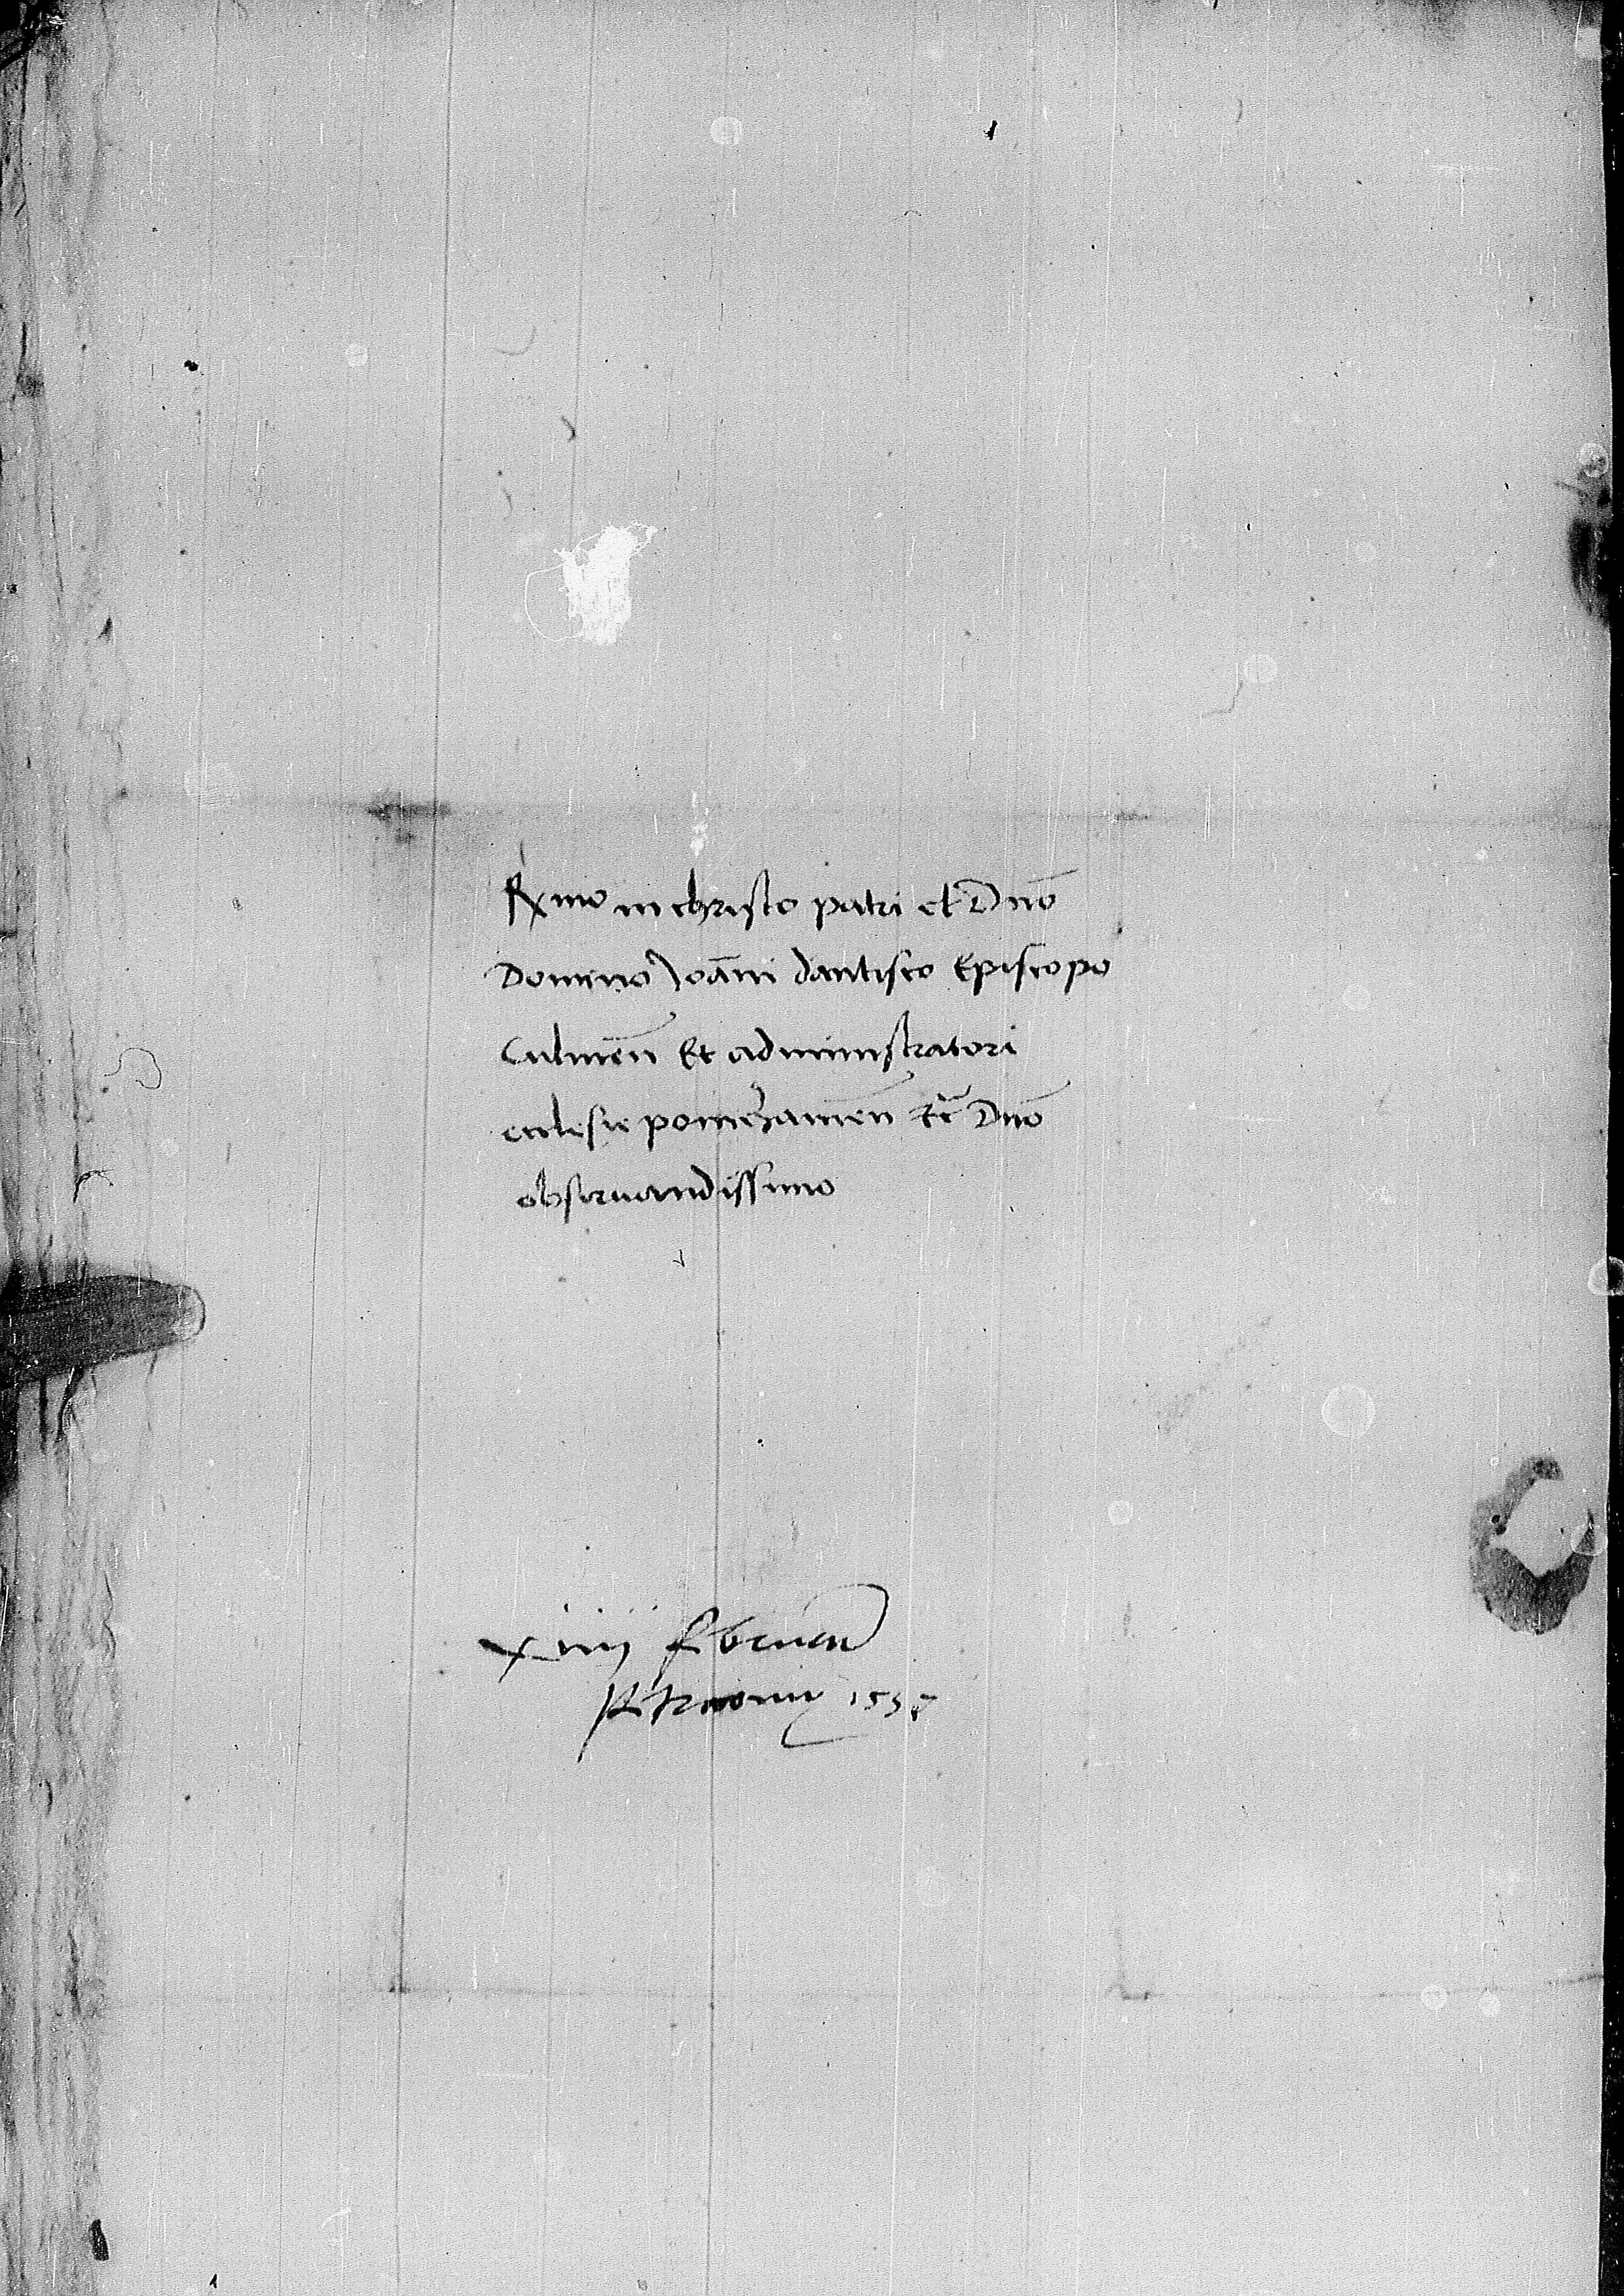 Rx mo in christo patri et Dno
Domino Joāni dantisco Episcopo
Culmēn Et administratori
ecclesie pomezanien Etc Dno
obseruandissimo
xiiij februarii
1535